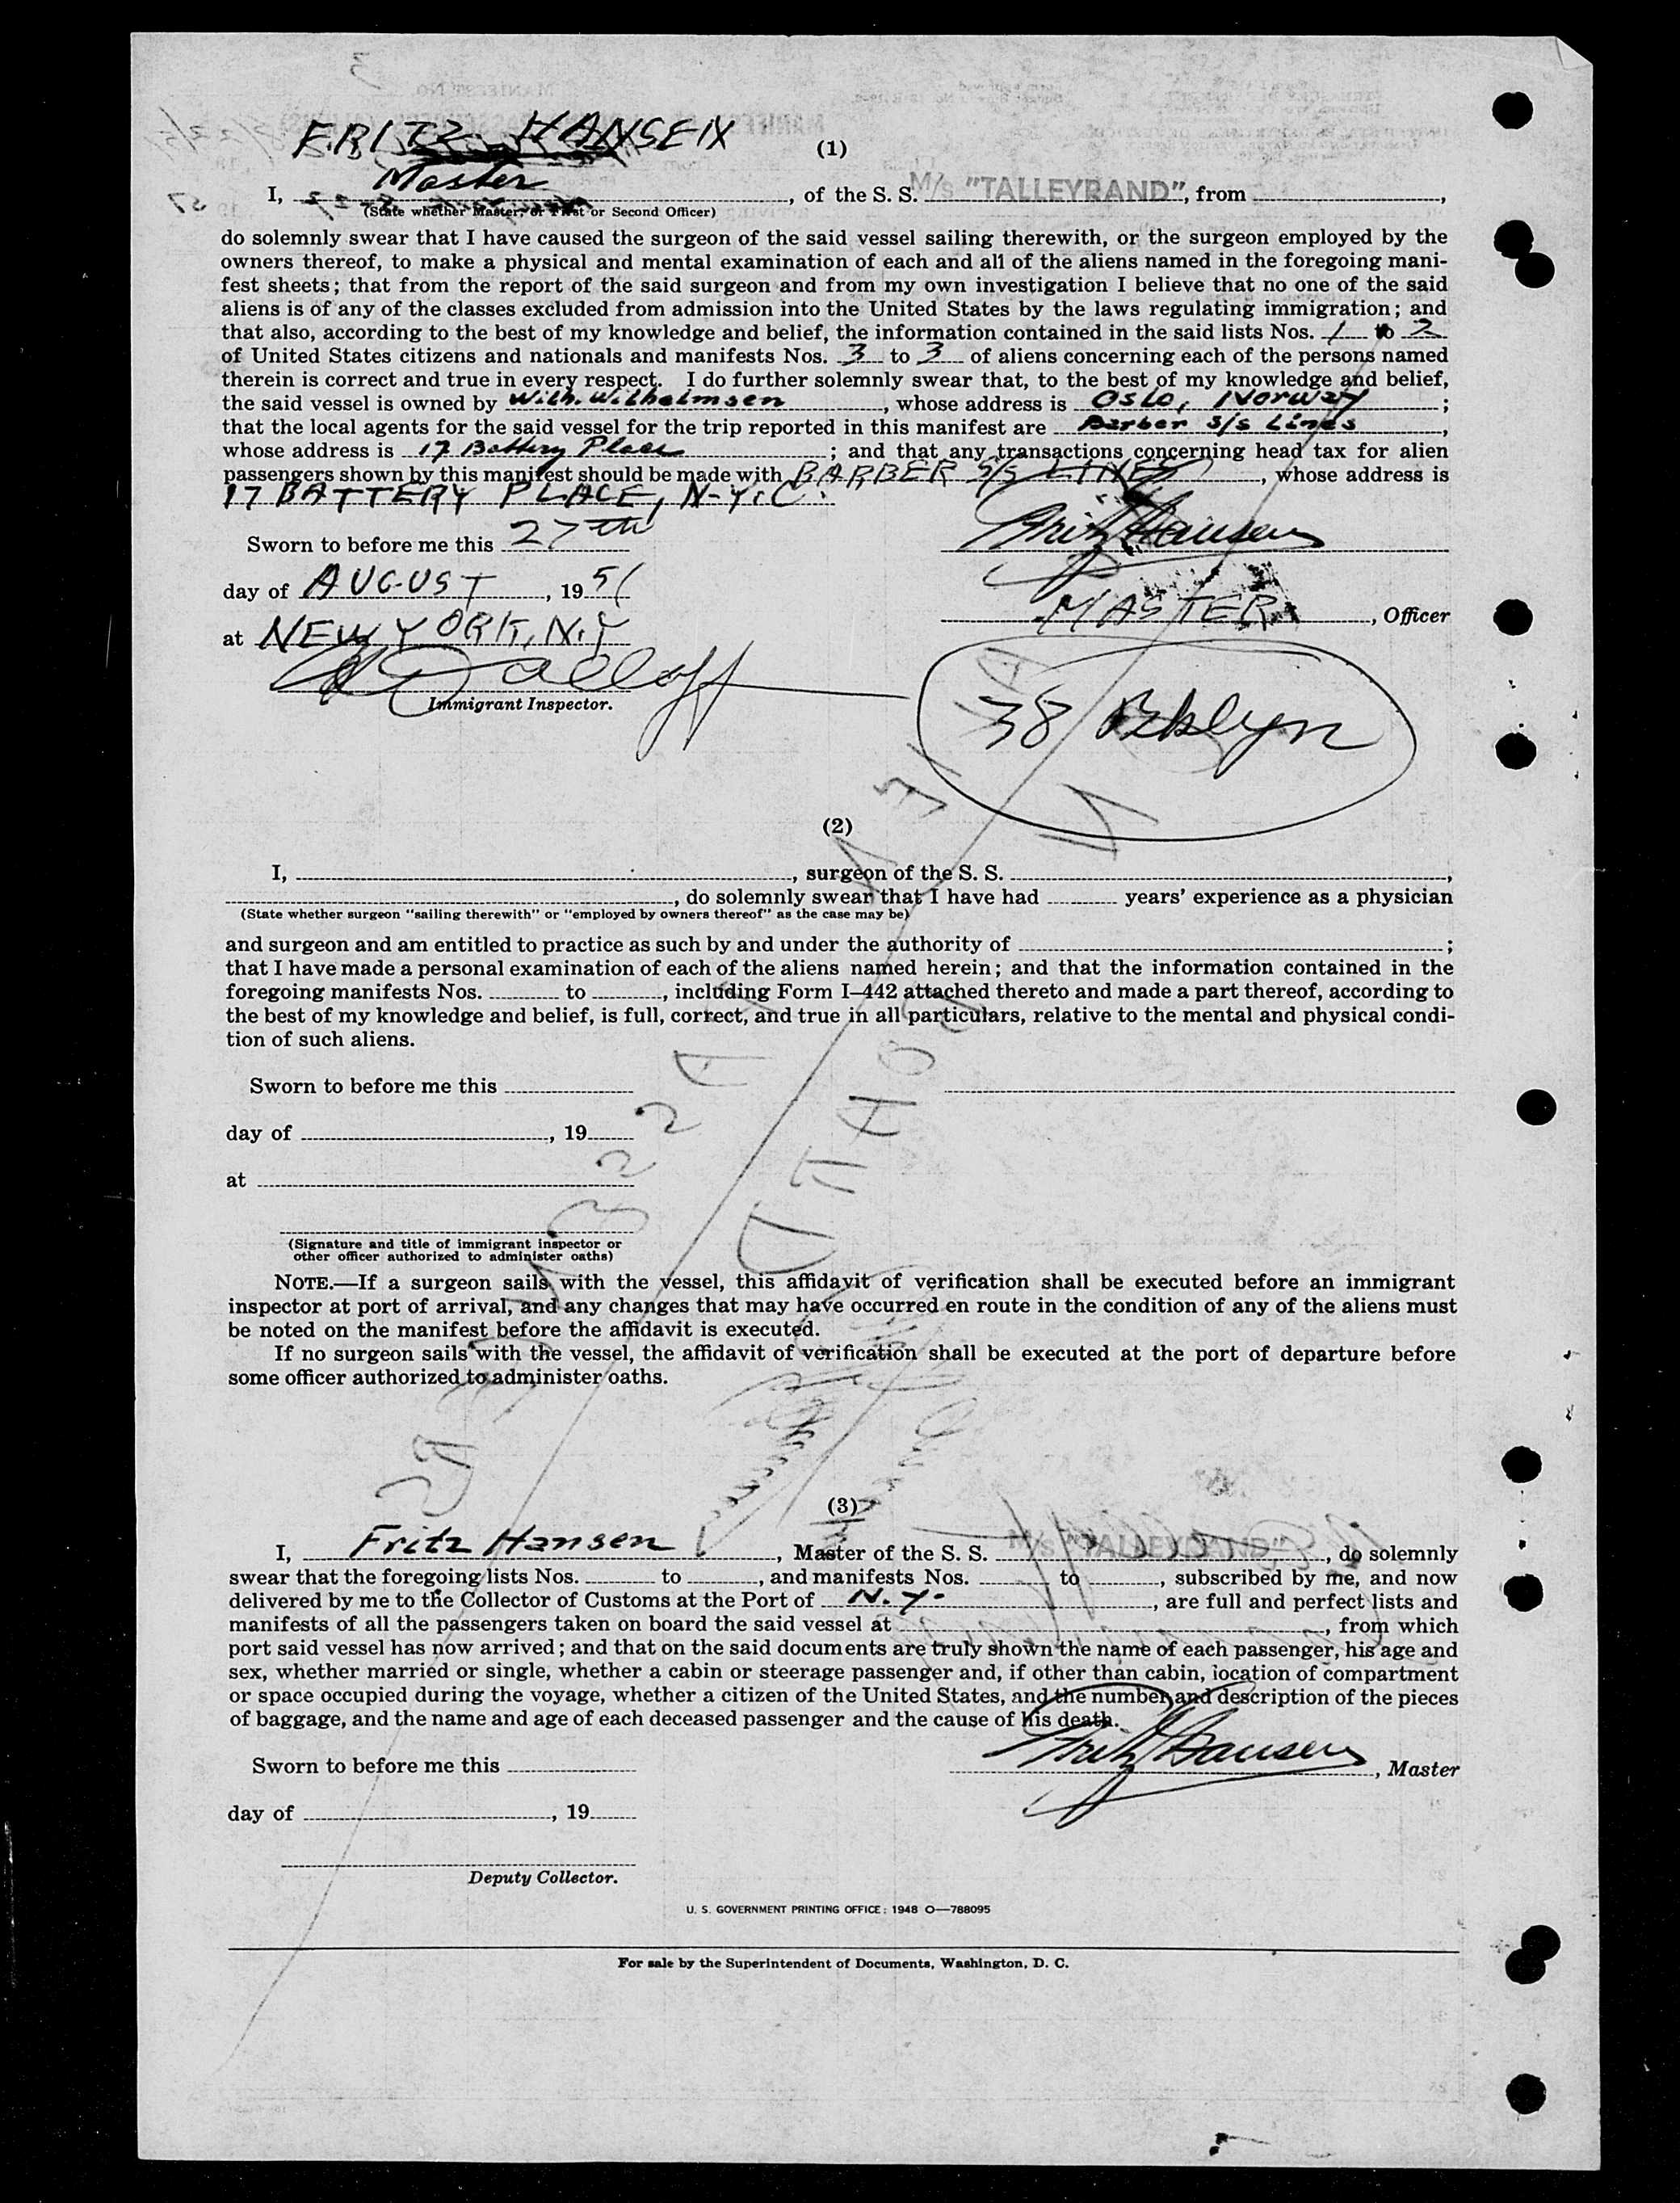 FRITZ HANSEN
(1)
Master
I, , of the S. S. M/s "TALLEYRAND", from ,
(State whether Master, or First or Second Officer)
do solemnly swear that I have caused the surgeon of the said vessel sailing therewith, or the surgeon employed by the
owners thereof, to make a physical and mental examination of each and all of the aliens named in the foregoing mani-
fest sheets; that from the report of the said surgeon and from my own investigation I believe that no one of the said
aliens is of any of the classes excluded from admission into the United States by the laws regulating immigration; and
that also, according to the best of my knowledge and belief, the information contained in the said lists Nos. 1 to 2
of United States citizens and nationals and manifests Nos. 3 to 3 of aliens concerning each of the persons named
therein is correct and true in every respect. I do further solemnly swear that, to the best of my knowledge and belief,
the said vessel is owned by Wilh. Wilhelmsen, whose address is Oslo, Norway;
that the local agents for the said vessel for the trip reported in this manifest are Barber S/s Lines,
whose address is 17 Battery Place; and that any transactions concerning head tax for alien
passengers shown by this manifest should be made with BARBER S/S LINES, whose address is
17 BATTERY PLACE, N.Y.C.
Sworn to before me this 27th
Fritz Hansen
day of AUGUST, 1951
MASTER, Officer
at NEW YORK, N.Y
Immigrant Inspector.
38 Bklyn
(2)
I, , surgeon of the S. S. ,
, do solemnly swear that I have had years' experience as a physician
(State whether surgeon "sailing therewith" or "employed by owners thereof" as the case may be)
and surgeon and am entitled to practice as such by and under the authority of ;
that I have made a personal examination of each of the aliens named herein; and that the information contained in the
foregoing manifests Nos. to , including Form I-442 attached thereto and made a part thereof, according to
the best of my knowledge and belief, is full, correct, and true in all particulars, relative to the mental and physical condi-
tion of such aliens.
Sworn to before me this
day of , 19
at
(Signature and title of immigrant inspector or
other officer authorized to administer oaths)
NOTE.—If a surgeon sails with the vessel, this affidavit of verification shall be executed before an immigrant
inspector at port of arrival, and any changes that may have occurred en route in the condition of any of the aliens must
be noted on the manifest before the affidavit is executed.
If no surgeon sails with the vessel, the affidavit of verification shall be executed at the port of departure before
some officer authorized to administer oaths.
(3)
I, Fritz Hansen, Master of the S. S. M/s "TALLEYRAND", do solemnly
swear that the foregoing lists Nos. to , and manifests Nos. to , subscribed by me, and now
delivered by me to the Collector of Customs at the Port of N.Y., are full and perfect lists and
manifests of all the passengers taken on board the said vessel at , from which
port said vessel has now arrived; and that on the said documents are truly shown the name of each passenger, his age and
sex, whether married or single, whether a cabin or steerage passenger and, if other than cabin, location of compartment
or space occupied during the voyage, whether a citizen of the United States, and the number and description of the pieces
of baggage, and the name and age of each deceased passenger and the cause of his death.
Sworn to before me this
Fritz Hansen, Master
day of , 19
Deputy Collector.
U. S. GOVERNMENT PRINTING OFFICE: 1948 O—788095
For sale by the Superintendent of Documents, Washington, D. C.